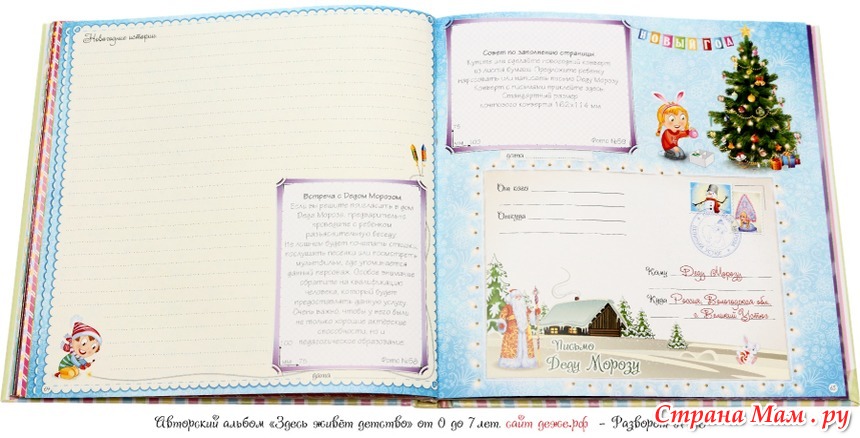 Новогодние истории
Встреча с Дедом Морозом
Если вы решите пригласить в дом
Деда Мороза, предварительно
проведите с ребенком
разъяснительную беседу.
Не лишним будет почитать стишки,
послушать песенки или посмотреть
мультфильмы, где упоминается
данный персонаж. Особое внимание
обратите на квалификацию
человека, который будет
предоставлять данную услугу.
Очень важно, чтобы у него были
не только хорошие актёрские
способности, но и
педагогическое образование.
Фото №58
дата
Совет по заполнению страницы
Купите или сделайте новогодний конверт
из листа бумаги. Предложите ребенку
нарисовать или написать письмо Деду Морозу.
Конверт с письмами приклейте здесь.
Стандартный размер
почтового конверта 162х114 мм.
Фото №59
дата
НОВЫЙ ГОД
От кого
Откуда
Кому Деду Морозу
Куда Россия, Вологодская обл.
г. Великий Устюг
Письмо
Деду Морозу
Авторский альбом «Здесь живёт детство» от 0 до 7 лет. сайт деже.рф - Разворот
Страна Мам.ру